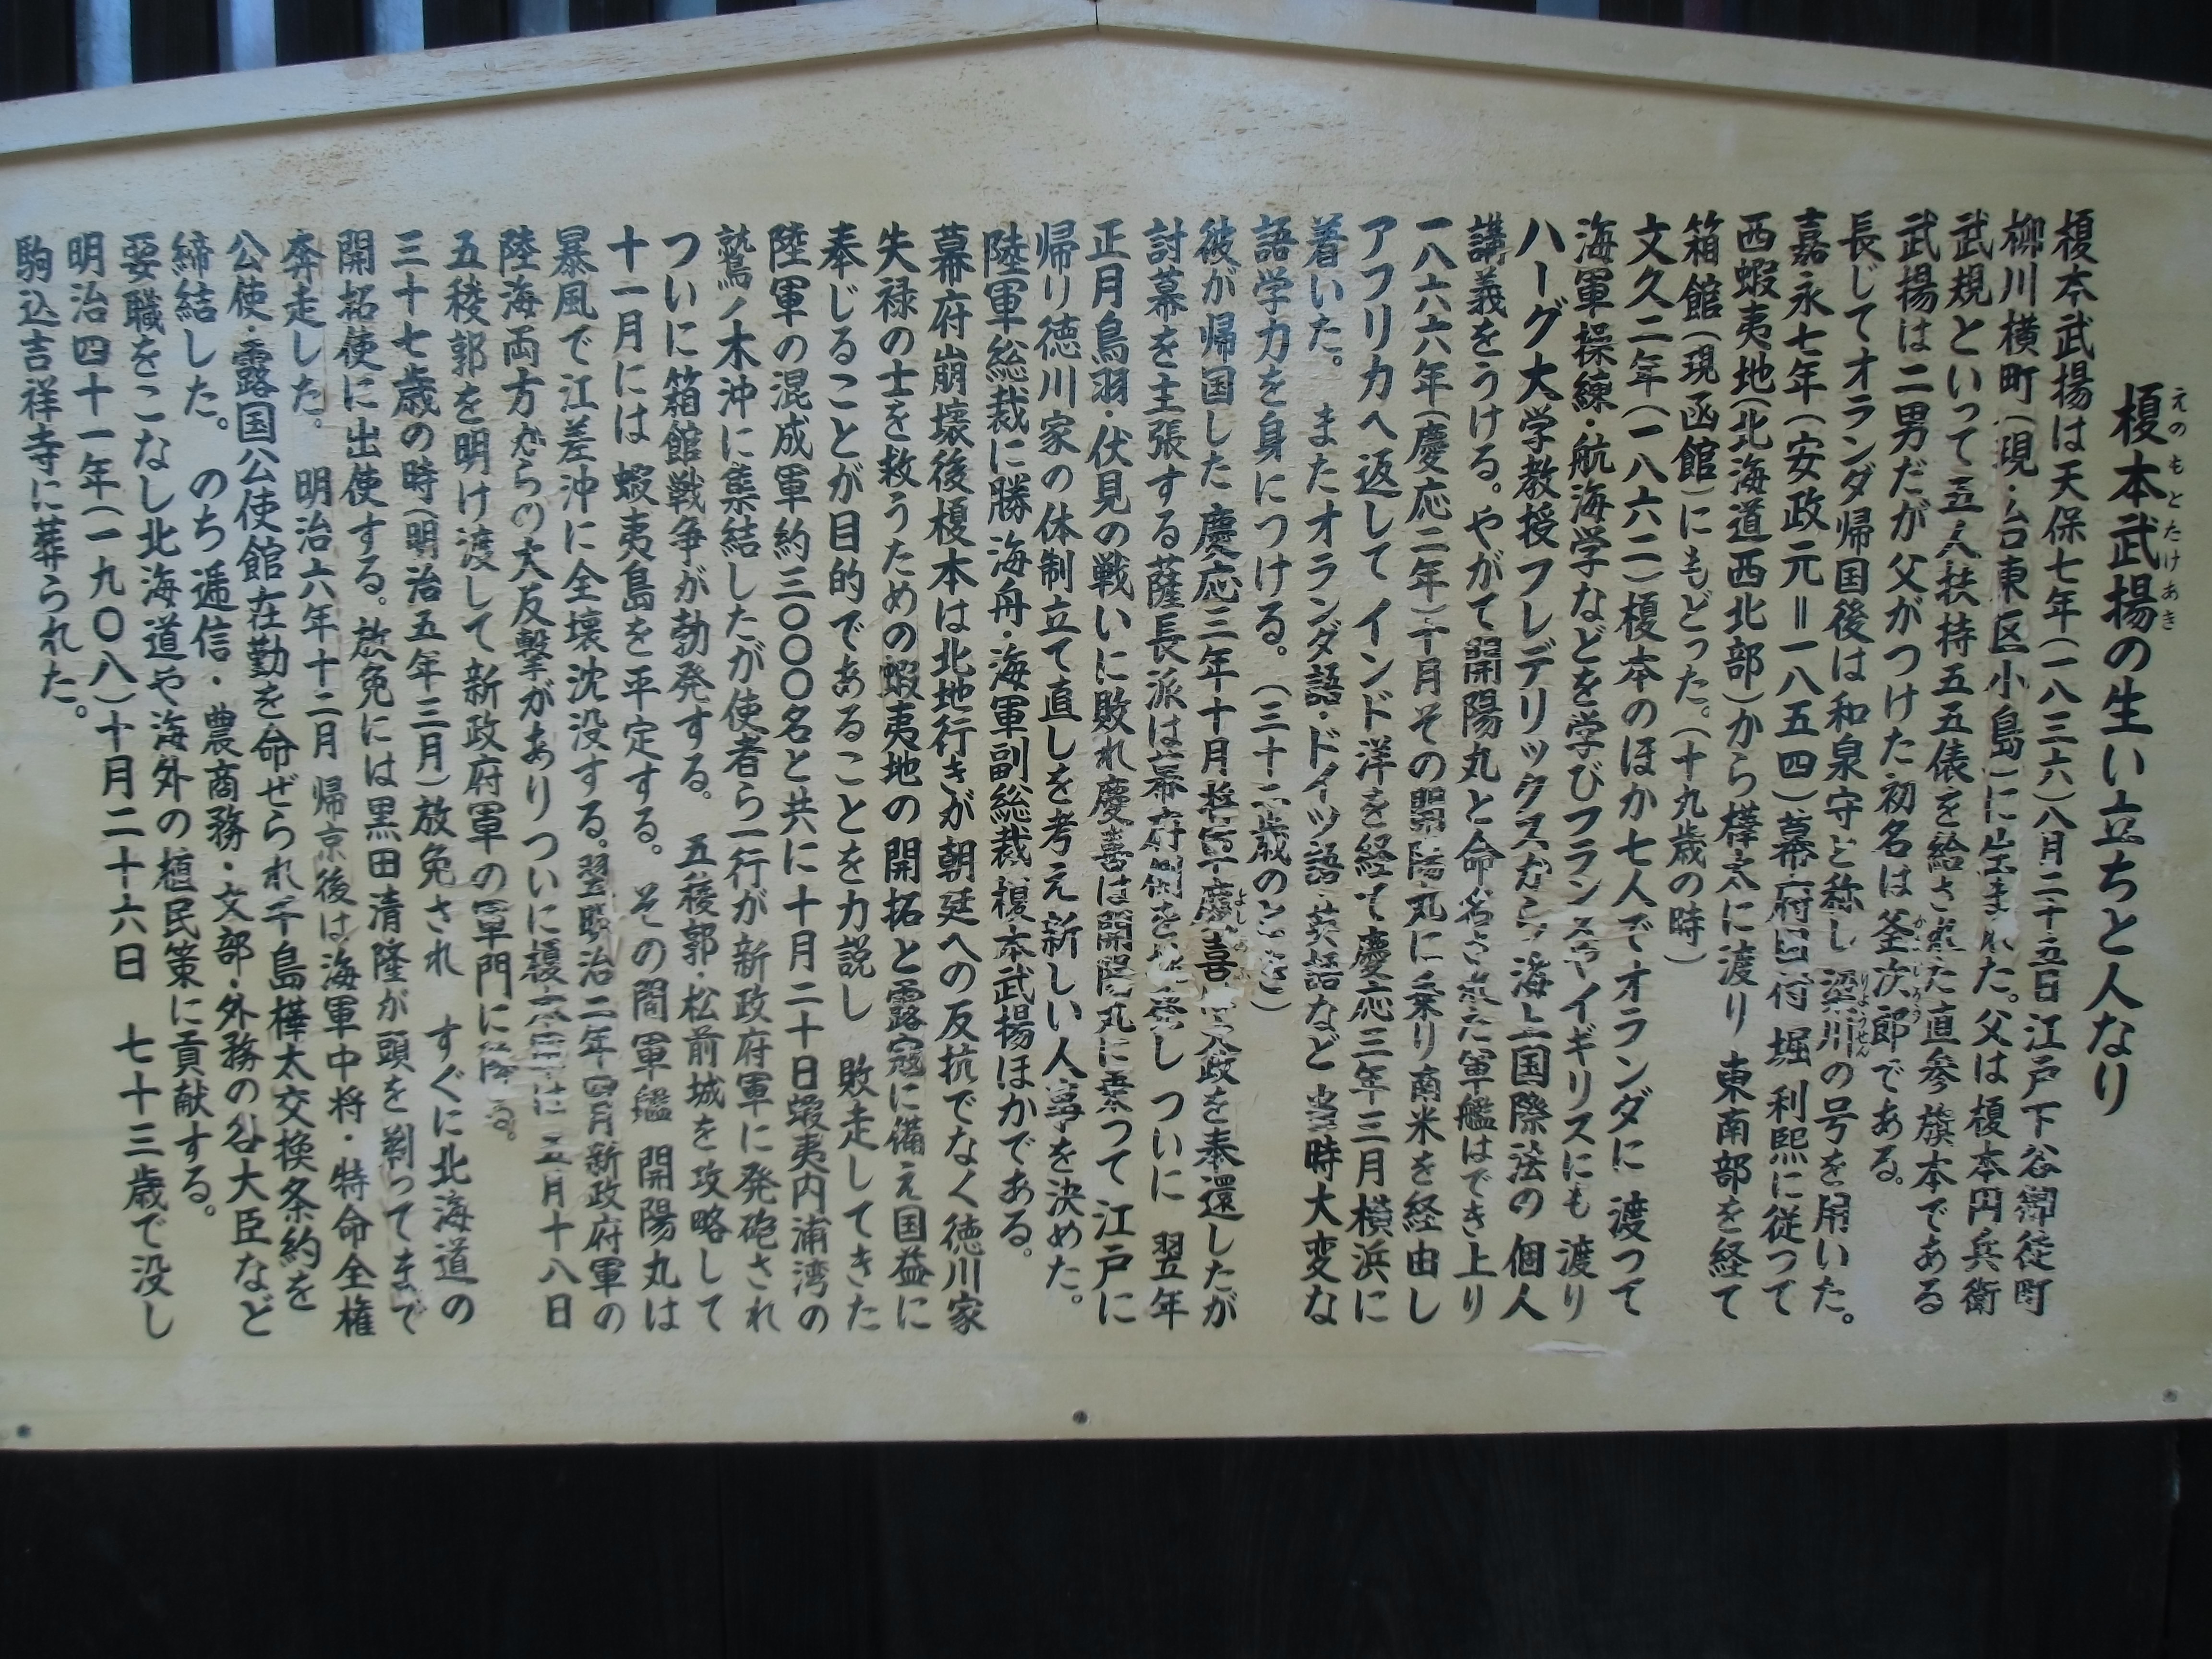 榎本武揚の生い立ちと人なり
えのもとたけあき
榎本武揚は天保七年(一八三六)八月二十五日 江戸下谷御徒町
柳川横町(現・台東区小島)に生まれた。父は榎本円兵衛
武規といって 五人扶持五五俵を給された直参旗本である
武揚は二男だが父がつけた初名は釜次郎である。
かまじろう
長じてオランダ帰国後は和泉守と称し 梁川の号を用いた。
りょうせん
嘉永七年(安政元=一八五四)幕府目付 堀 利熙に従って
西蝦夷地(北海道西北部)から樺太に渡り 東南部を経て
箱館(現函館)にもどった。(十九歳の時)
文久二年(一八六二)榎本のほか七人でオランダに 渡って
海軍操練・航海学などを学びフランスやイギリスにも渡り
ハーグ大学教授フレデリックスから 海上国際法の 個人
講義をうける。やがて 開陽丸と命名された軍艦はでき上り
一八六六年(慶応二年)十月その開陽丸に乗り南米を経由し
アフリカへ返して インド洋を経て慶応三年三月横浜に
着いた。 またオランダ語・ドイツ語・英語など 当時大変な
語学力を身につける。(三十二歳のとき)
彼が帰国した 慶応三年十月 慶喜は大政を奉還したが
よしのぶ
討幕を主張する薩長派は幕府側を し ついに 翌年
正月鳥羽・伏見の戦いに敗れ慶喜は開陽丸に乗って 江戸に
帰り徳川家の体制立て直しを考え 新しい人事を決めた。
陸軍総裁に勝 海舟・海軍副総裁榎本武揚ほかである。
幕府崩壊後榎本は北地行きが朝廷への反抗でなく徳川家
失禄の士を救うための蝦夷地の開拓と露寇に備え国益に
奉じることが目的であることを力説し 敗走してきた
陸軍の混成軍約三〇〇〇名と共に十月二十日蝦夷内浦湾の
鷲ノ木沖に集結したが使者ら一行が新政府軍に発砲され
ついに箱館戦争が勃発する。 五稜郭・松前城を攻略して
十一月には 蝦夷島を平定する。 その間軍艦 開陽丸は
暴風で江差沖に全壊沈没する。翌明治二年四月新政府軍の
陸海両方からの大反撃がありついに榎本 は 五月十八日
五稜郭を明け渡して 新政府軍の軍門に降る。
三十七歳の時(明治五年三月)放免され すぐに北海道の
開拓使に出使する。放免には黒田清隆が頭を剃ってまで
奔走した。 明治六年十二月 帰京後は海軍中将・特命全権
公使・露国公公使館在勤を命ぜられ千島樺太交換条約を
締結した。 のち逓信・農商務・文部・外務の各大臣など
要職をこなし北海道や海外の植民策に貢献する。
明治四十一年(一九〇八)十月二十六日 七十三歳で没し
駒込吉祥寺に葬られた。